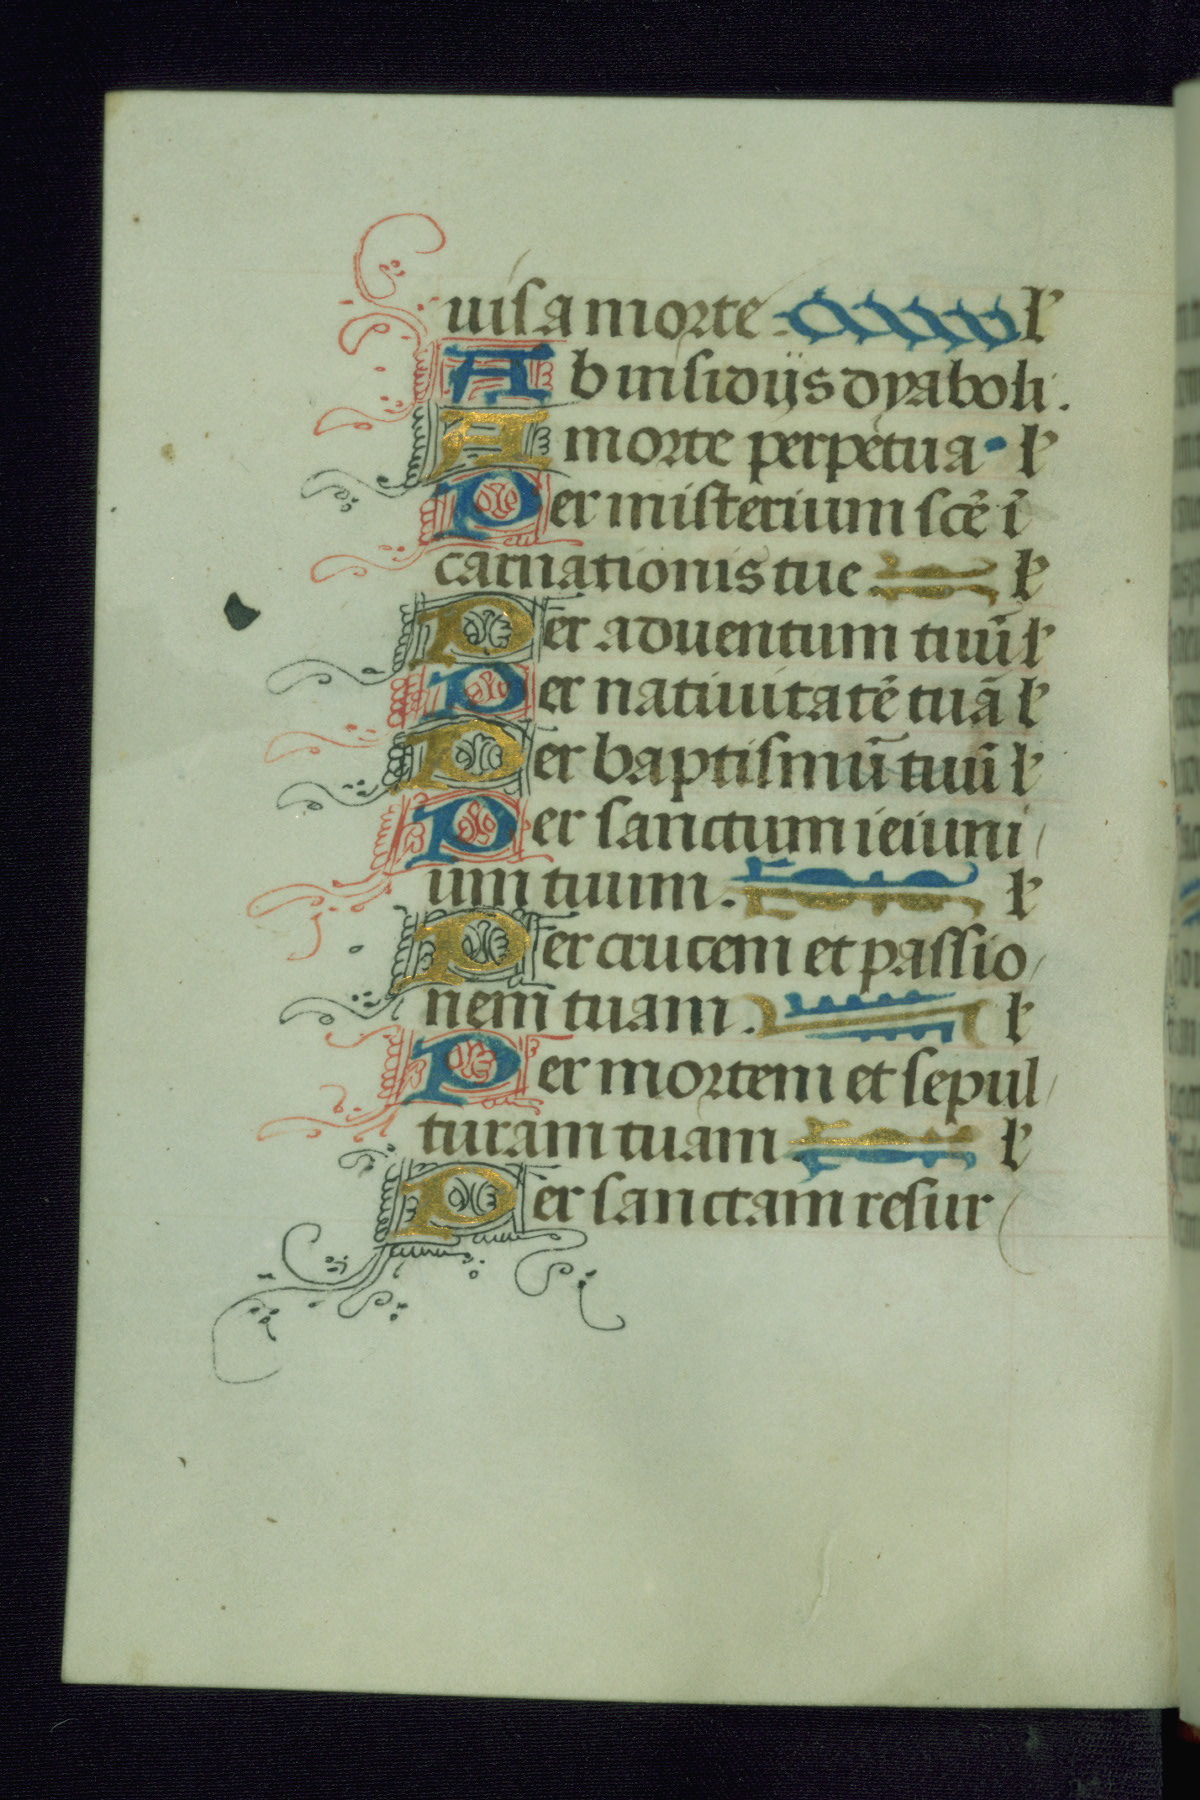 uisa morte l
Ab insidijs dyaboli.
A morte perpetua l
Per misterium scē ī
carnationis tue l
Per aduentum tuū l
Per natiuitatē tuā l
Per baptismū tuū l
Per sanctum ieiuni
um tuum. l
Per crucem et passio
nem tuam. l
Per mortem et sepul
turam tuam l
Per sanctam resur